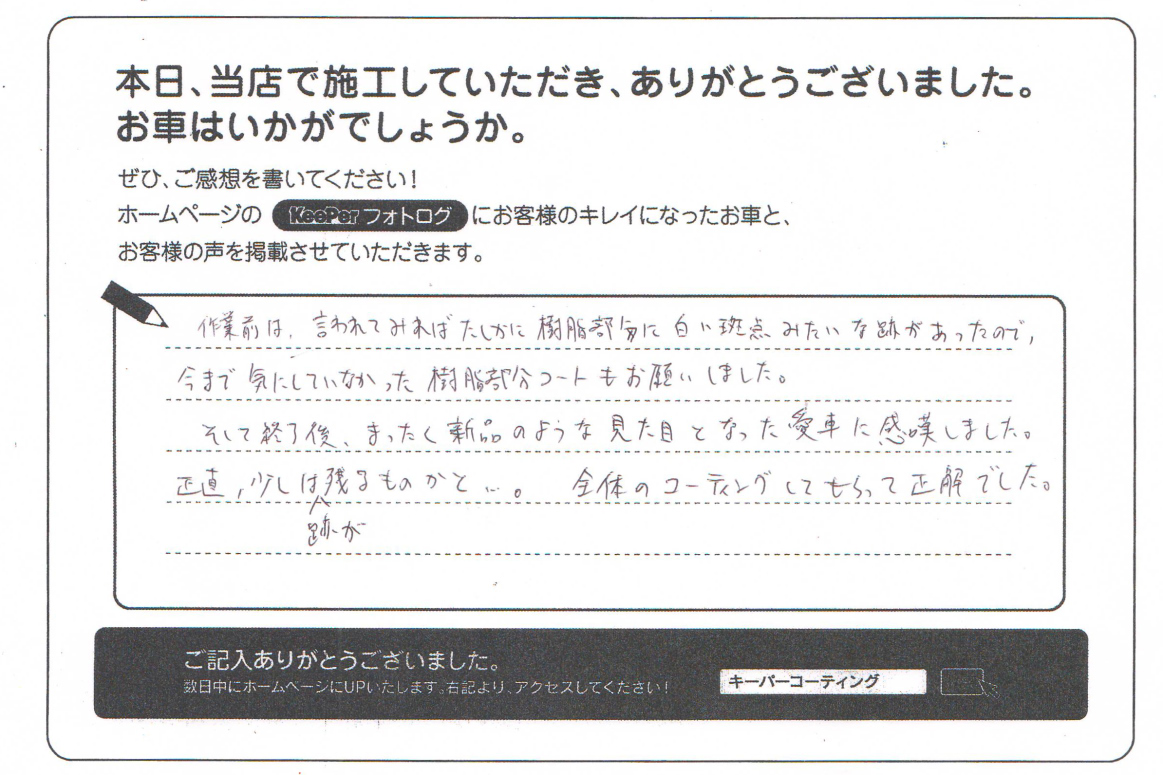 本日、当店で施工していただき、ありがとうございました。
お車はいかがでしょうか。
ぜひ、ご感想を書いてください!
ホームページの KeePer フォトログ にお客様のキレイになったお車と、
お客様の声を掲載させていただきます。
作業前は、言われてみればたしかに樹脂部分に白い斑点みたいな跡があったので,
今まで気にしていなかった樹脂部分コートもお願いしました。
そして終了後、まったく新品のような見た目となった愛車に感嘆しました。
正直,少しは残るものかと…。 全体のコーティングしてもらって正解でした。
跡が
ご記入ありがとうございました。
数日中にホームページにUPいたします。右記より、アクセスしてください!
キーパーコーティング